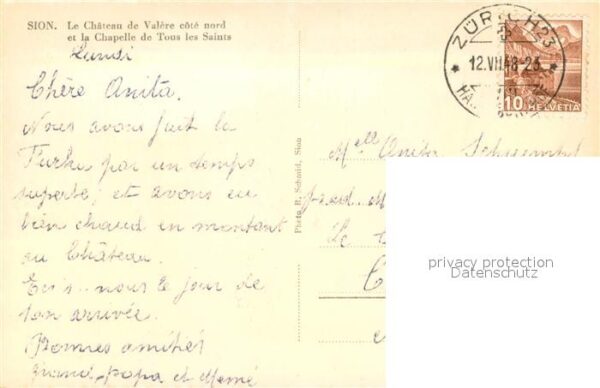 SION. Le Château de Valère côté nord
et la Chapelle de Tous les Saints
Lundi
Chère Anita.
Nous avons fait la
Furka par un temps
superbe; et avons eu
bien chaud en montant
au Château.
nous le jour de
ton arrivée.
Bonnes amitiés
Grand-papa et Mémé
Photo R. Schmid, Sion
ZÜRICH 23
12.VII.48-23
10 HELVETIA
Mlle Anita
Le
privacy protection
Datenschutz